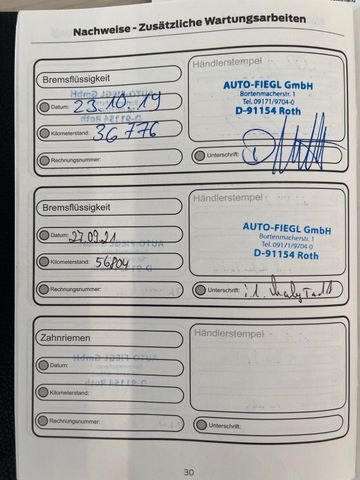 Nachweise - Zusätzliche Wartungsarbeiten
Bremsflüssigkeit
Datum: 23.10.19
Kilometerstand: 36776
Rechnungsnummer:
Händlerstempel
AUTO-FIEGL GmbH
Bortenmacherstr. 1
Tel. 09171/9704-0
D-91154 Roth
Unterschrift:
Bremsflüssigkeit
Datum: 27.09.21
Kilometerstand: 56804
Rechnungsnummer:
Händlerstempel
AUTO-FIEGL GmbH
Bortenmacherstr. 1
Tel. 09171/9704-0
D-91154 Roth
Unterschrift:
Zahnriemen
Datum:
Kilometerstand:
Rechnungsnummer:
Händlerstempel
Unterschrift:
30